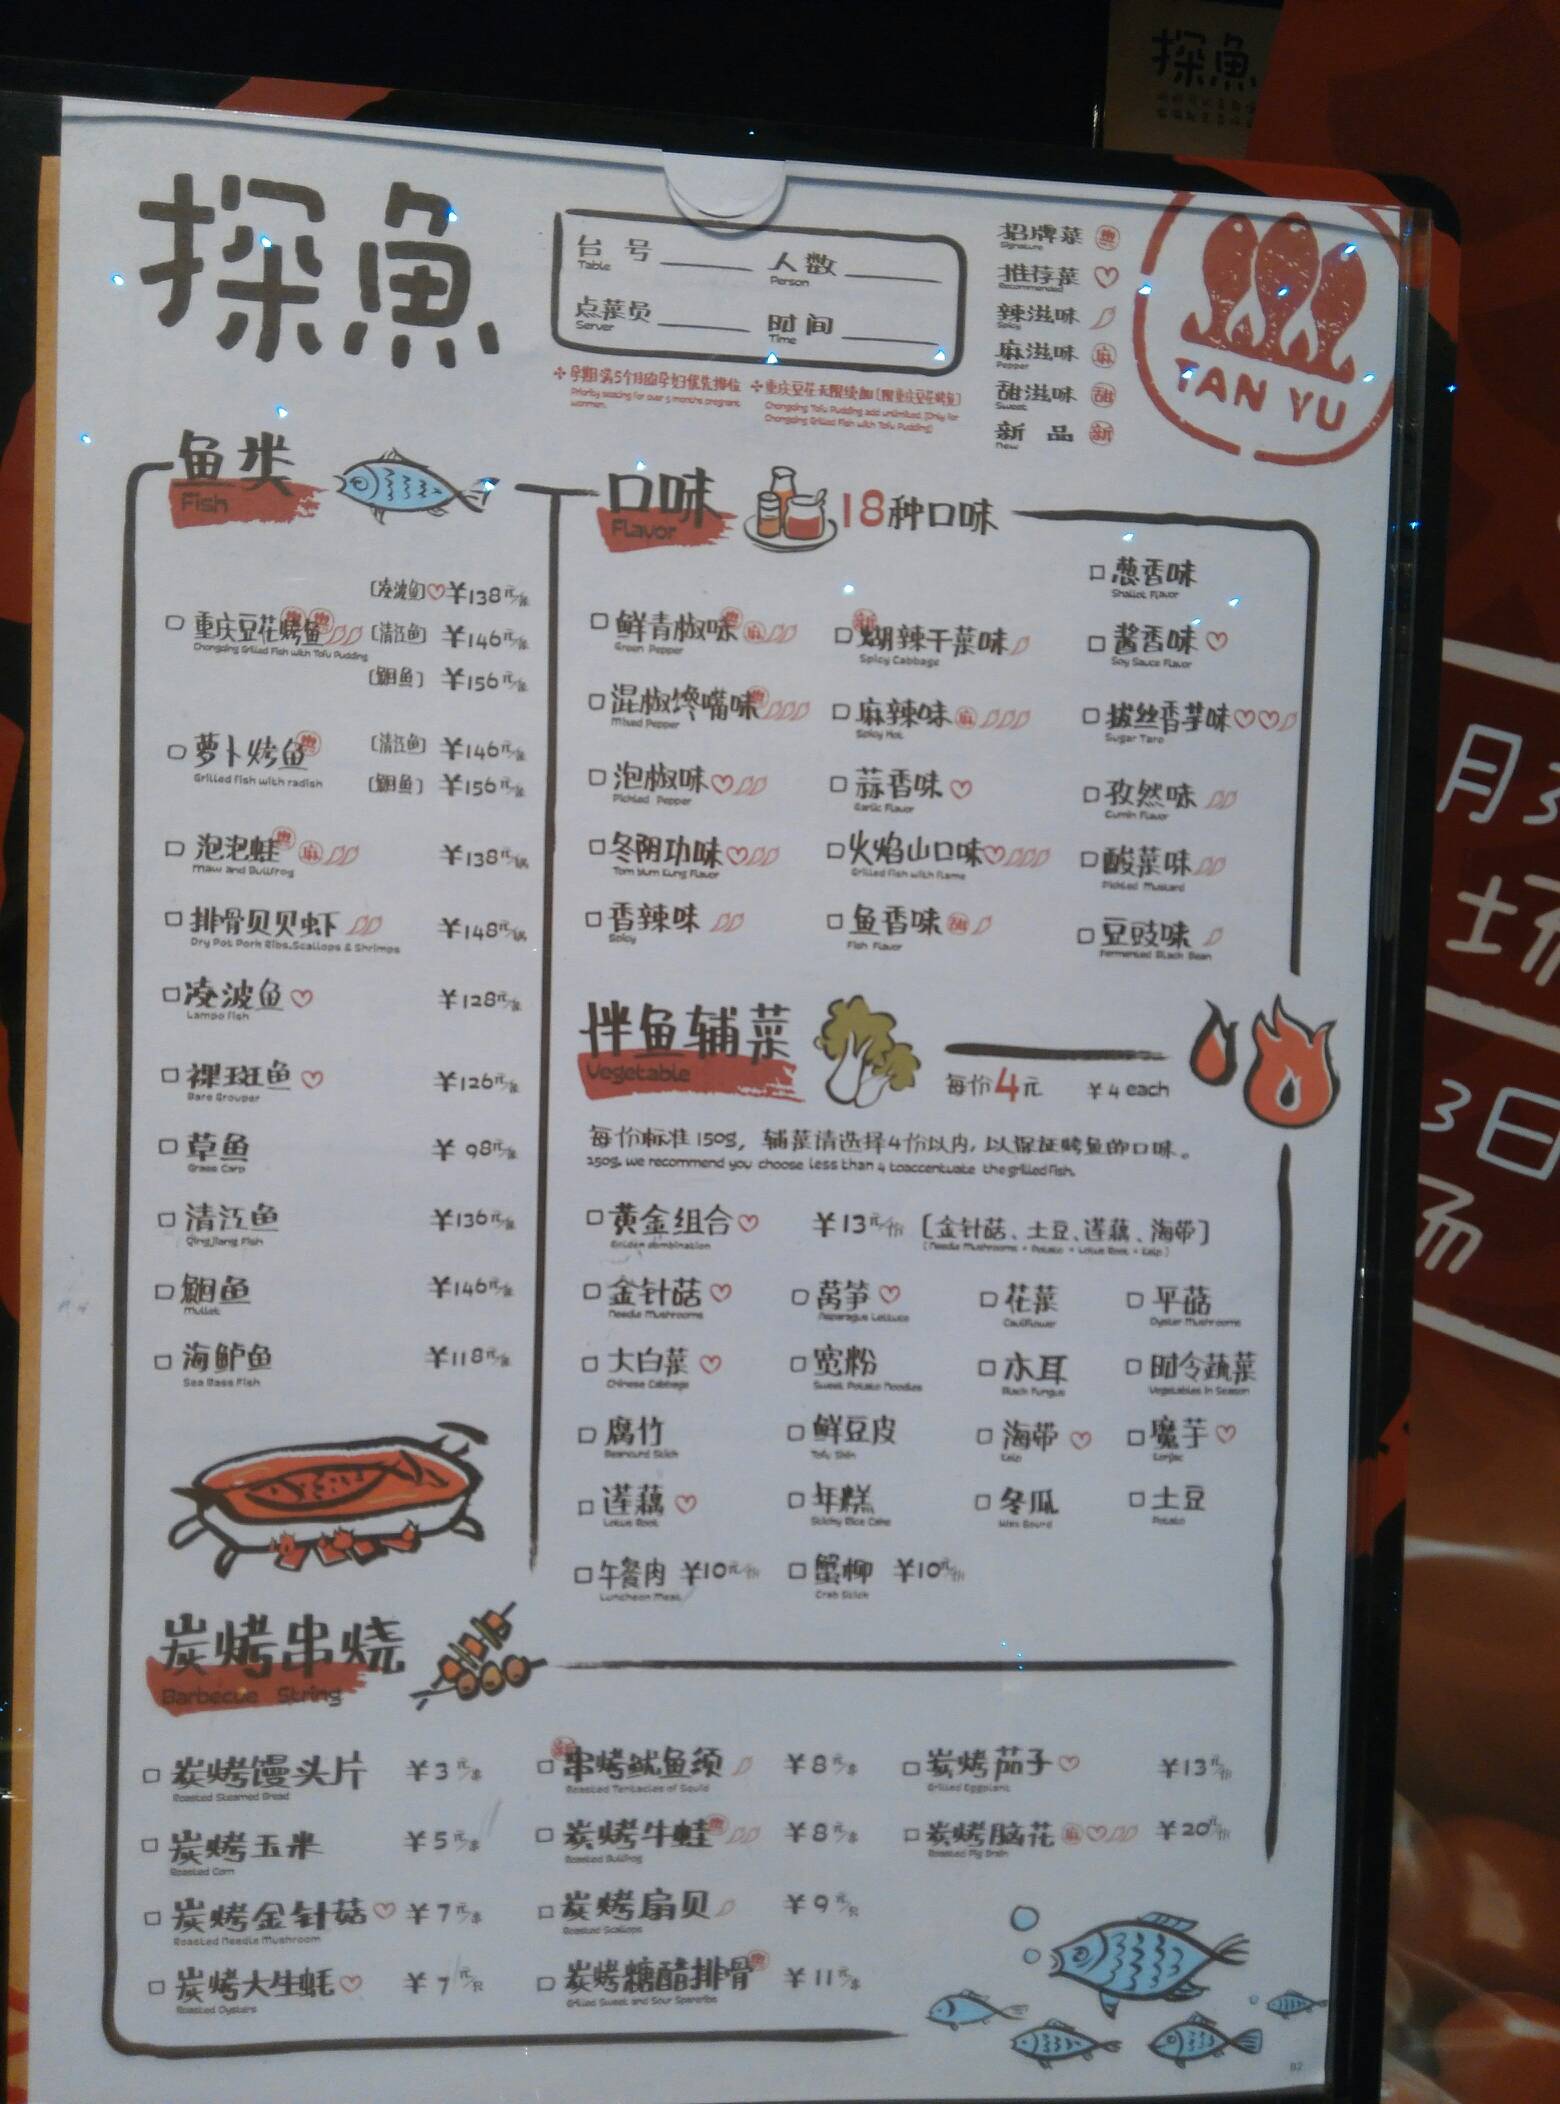 探魚
探魚
台号 Table
人数 Person
点菜员 Server
时间 Time
孕期满5个月的孕妇优先排位
Priority seating for over 5 months pregnant women.
重庆豆花无限续加[限重庆豆花烤鱼]
Chongqing Tofu Pudding add unlimited. [Only for Chongqing Grilled Fish with Tofu Pudding]
招牌菜 Signature
推荐菜 Recommended
辣滋味 Spicy
麻滋味 麻 Pepper
甜滋味 甜 Sweet
新品 新 New
TAN YU
鱼类
Fish
重庆豆花烤鱼 [凌波鱼] ¥138元/条
Chongqing Grilled Fish with Tofu Pudding
[清江鱼] ¥146元/条
[鮰鱼] ¥156元/条
萝卜烤鱼 [清江鱼] ¥146元/条
Grilled fish with radish
[鮰鱼] ¥156元/条
泡泡蛙 麻 ¥138元/锅
Maw and Bullfrog
排骨贝贝虾 ¥148元/锅
Dry Pot Pork Ribs.Scallops & Shrimps
凌波鱼 ¥128元/条
Lampo fish
裸斑鱼 ¥126元/条
Bare Grouper
草鱼 ¥98元/条
Grass Carp
清江鱼 ¥136元/条
Qingjiang Fish
鮰鱼 ¥146元/条
Mullet
海鲈鱼 ¥118元/条
Sea Bass Fish
口味 18种口味
Flavor
葱香味
Shallot Flavor
鲜青椒味 麻
Green Pepper
新 煳辣干菜味
Spicy Cabbage
酱香味
Soy Sauce Flavor
混椒馋嘴味
Mixed Pepper
麻辣味 麻
Spicy Hot
拔丝香芋味
Sugar Taro
泡椒味
Pickled Pepper
蒜香味
Garlic Flavor
孜然味
Cumin Flavor
冬阴功味
Tom Yum Kung Flavor
火焰山口味
Grilled fish with flame
酸菜味
Pickled Mustard
香辣味
Spicy
鱼香味 甜
Fish Flavor
豆豉味
Fermented Black Bean
拌鱼辅菜
Vegetable
每份4元 ¥4 each
每份标准150g，辅菜请选择4份以内，以保证烤鱼的口味。
150g, we recommend you choose less than 4 toaccentuate the grilled fish.
黄金组合 ¥13元/份 [金针菇、土豆、莲藕、海带]
Golden combination [Needle Mushrooms + Potato + Lotus Root + Kelp]
金针菇 Needle Mushrooms
莴笋 Asparagus Lettuce
花菜 Cauliflower
平菇 Oyster Mushrooms
大白菜 Chinese Cabbage
宽粉 Sweet Potato Noodles
木耳 Black Fungus
时令蔬菜 Vegetables In Season
腐竹 Beancurd Stick
鲜豆皮 Tofu Skin
海带 Kelp
魔芋 Konjac
莲藕 Lotus Root
年糕 Sticky Rice Cake
冬瓜 Wax Gourd
土豆 Potato
午餐肉 ¥10元/份
Luncheon Meat
蟹柳 ¥10元/份
Crab Stick
炭烤串烧
Barbecue String
炭烤馒头片 ¥3元/串
Roasted Steamed Bread
新 串烤鱿鱼须 ¥8元/串
Roasted Tentacles of Squid
炭烤茄子 ¥13元/份
Grilled Eggplant
炭烤玉米 ¥5元/串
Roasted Corn
炭烤牛蛙 ¥8元/串
Roasted Bullfrog
炭烤脑花 麻 ¥20元/份
Roasted Pig Brain
炭烤金针菇 ¥7元/串
Roasted Needle Mushroom
炭烤扇贝 ¥9元/只
Roasted Scallops
炭烤大生蚝 ¥7元/只
Roasted Oysters
炭烤糖醋排骨 ¥11元/串
Grilled Sweet and Sour Spareribs
B2
月3
3日
场